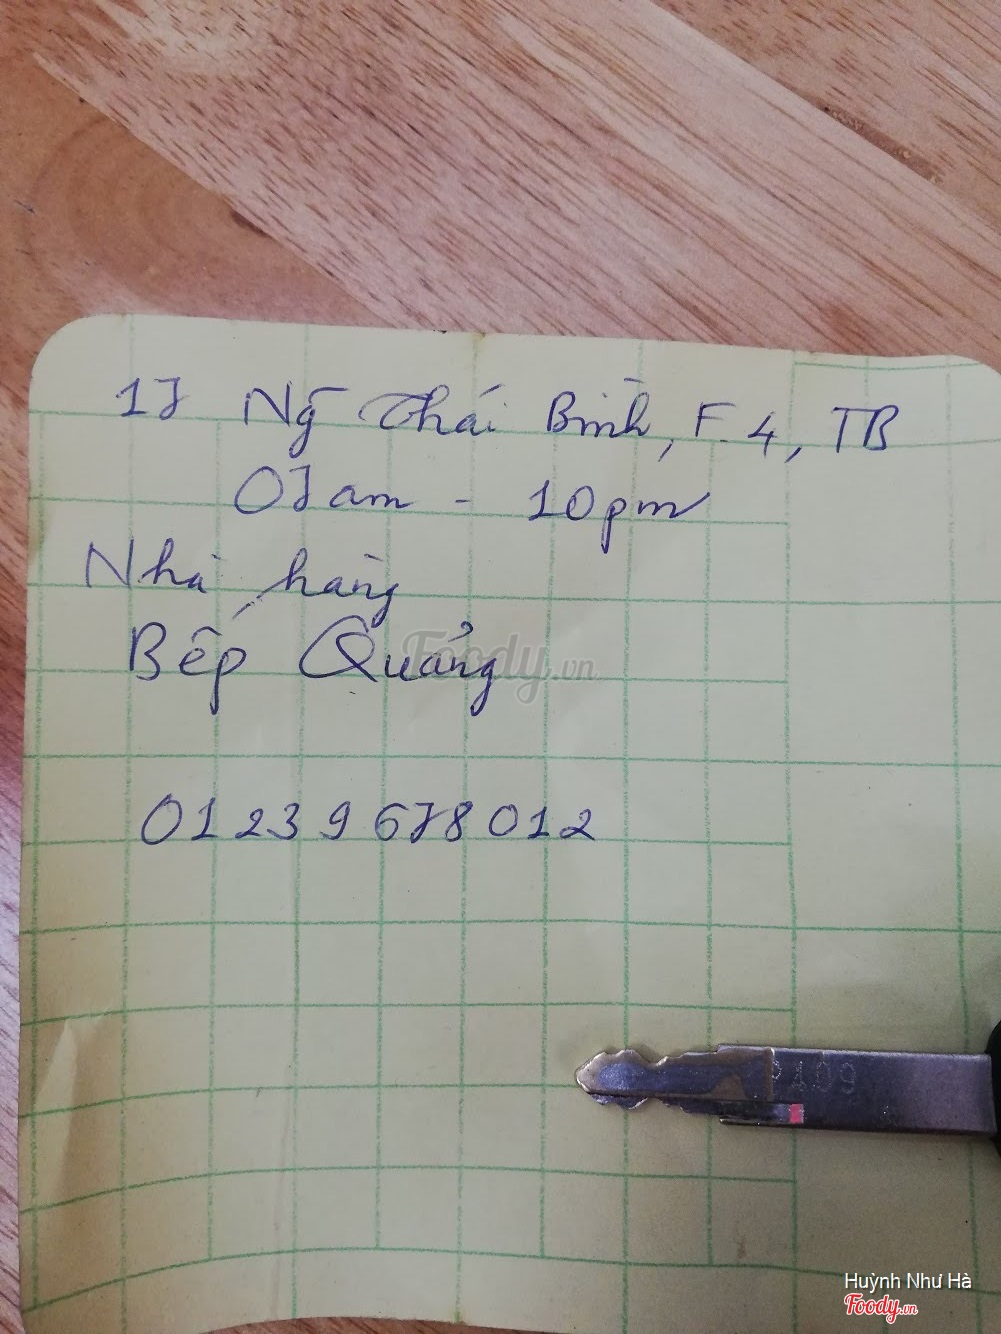 17 Ng~ Thái Bình, F.4, TB
07am - 10pm
Nhà hàng
Bếp Quảng
Foody.vn
01239678012
2409
Huỳnh Như Hà
Foody.vn